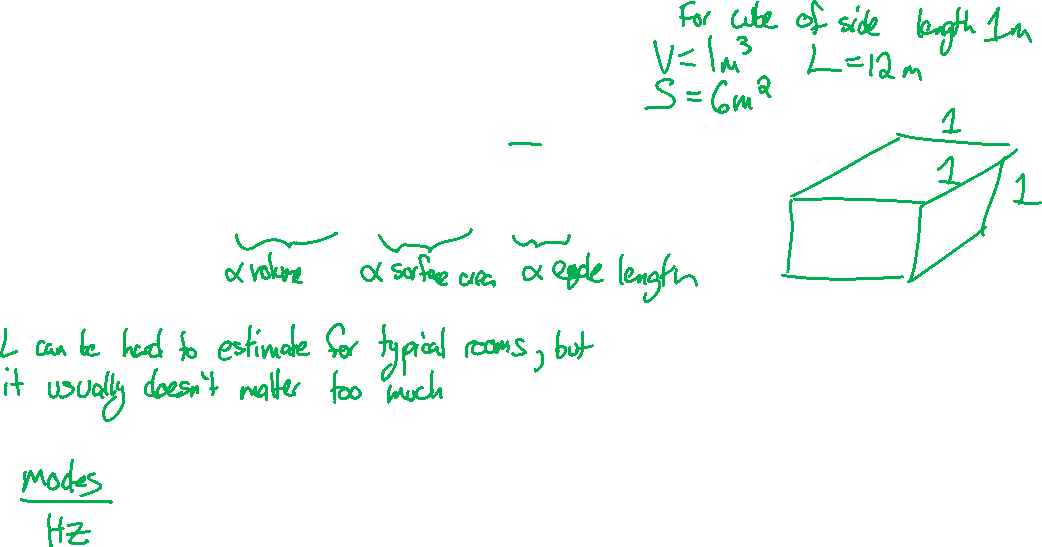 For cube of side length 1m
V=1m³ L=12m
S=6m²
1
1
1
α volume α surface area α egde length
L can be hard to estimate for typical rooms, but
it usually doesn't matter too much
modes
Hz